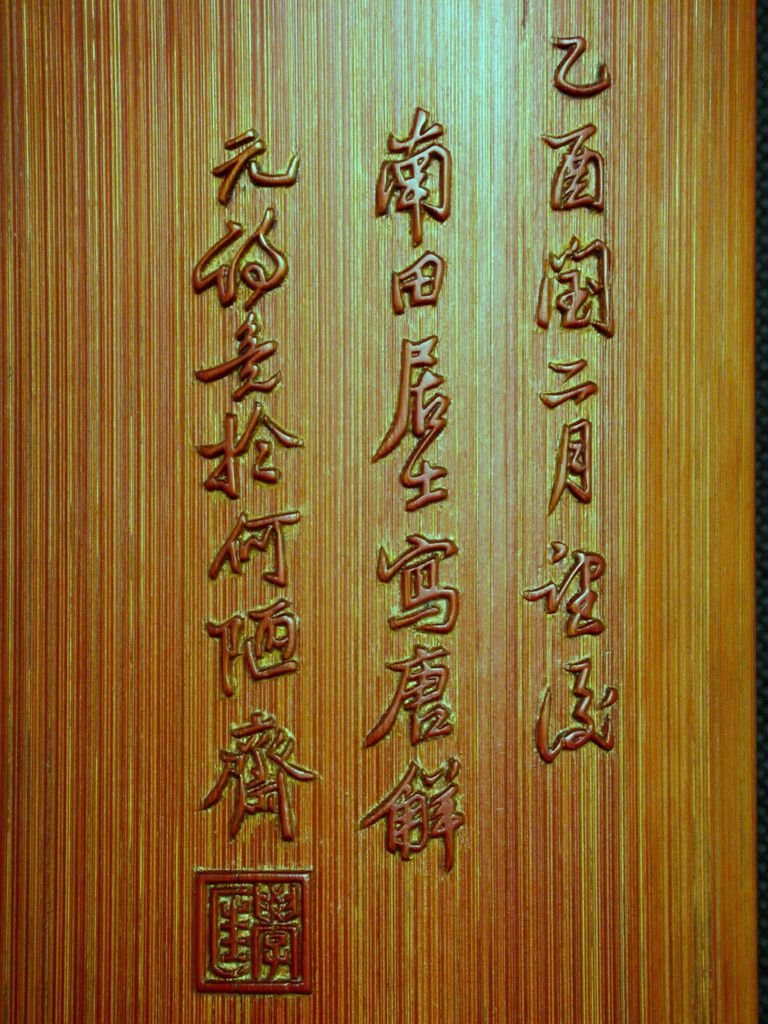 乙酉閏二月望後
南田居士寫唐解
元詩意於何陋齋